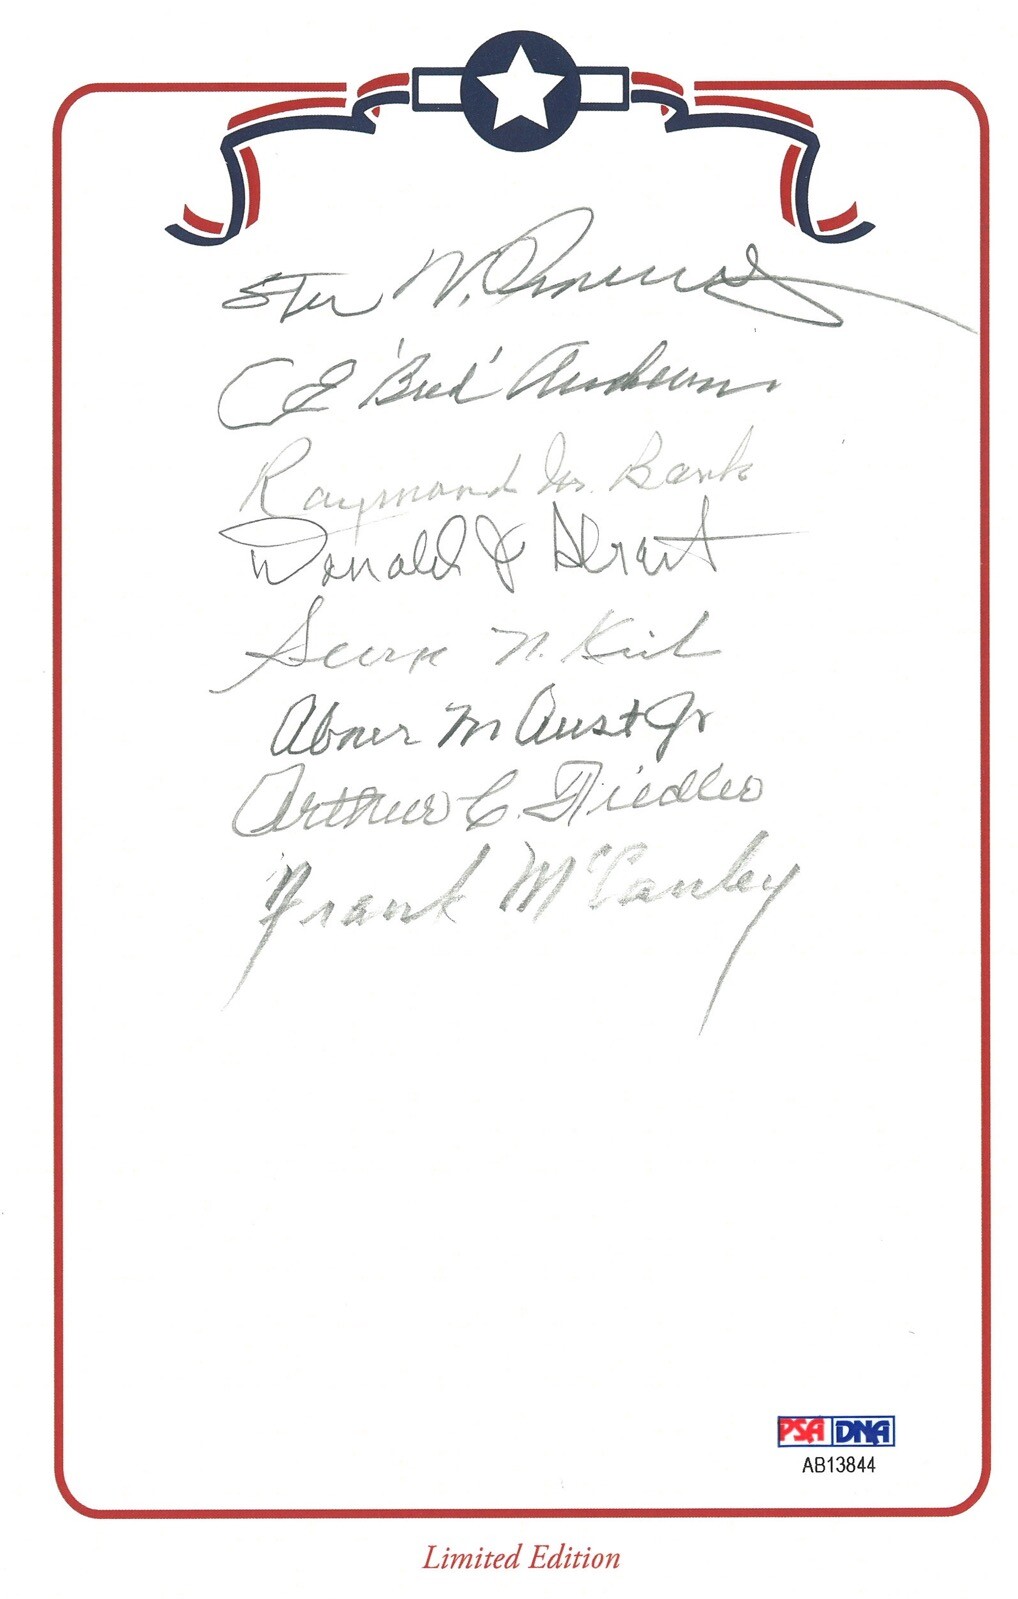 Sten W.
CE 'Bud' Anderson
Raymond M. Bank
Donald J Strait
George N. Kirk
Abner M Aust Jr
Arthur C. Fiedler
Frank McCauley
PSA DNA
AB13844
Limited Edition